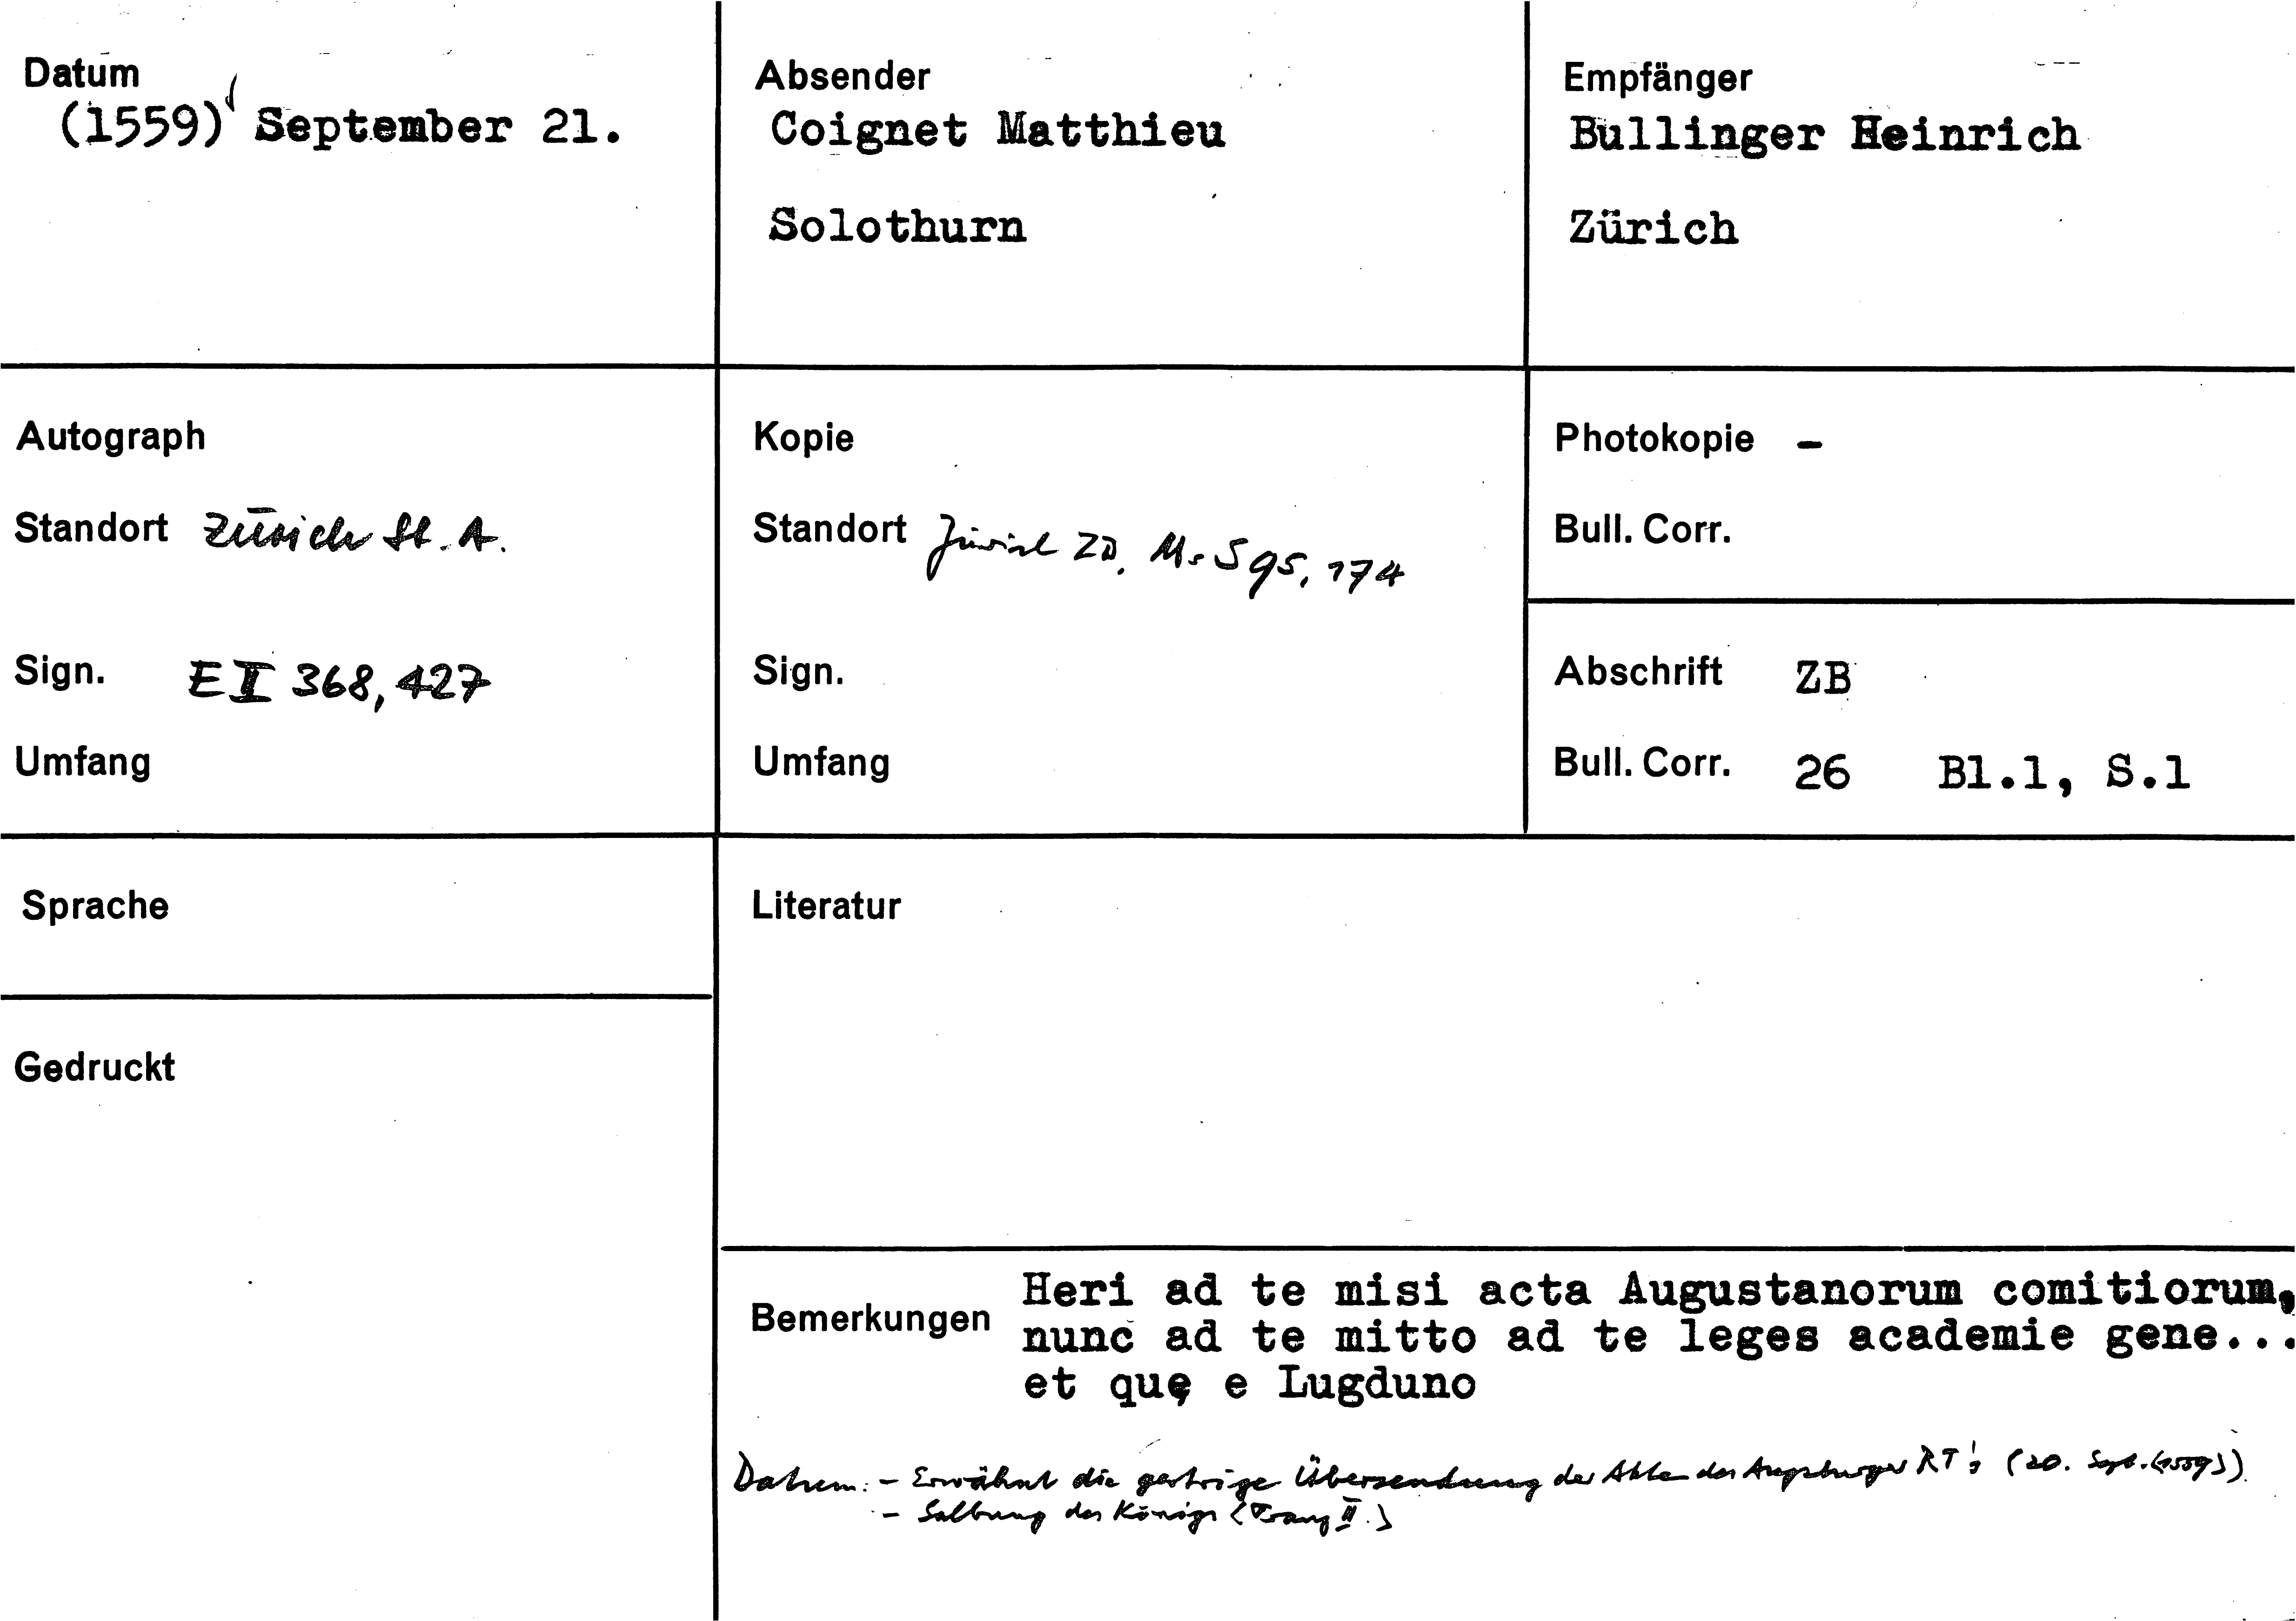 Datum
(1559) September 21.
Absender
Coignet Matthieu
Solothurn
Empfänger
Bullinger Heinrich
Zürich
Autograph
Standort Zürich St. A.
Sign. E II 368, 427
Umfang
Kopie
Standort Zürich ZB, Ms S 95, 174
Sign.
Umfang
Photokopie -
Bull. Corr.
Abschrift ZB
Bull. Corr. 26 Bl.1, S.1
Sprache
Gedruckt
Literatur
Bemerkungen
Heri ad te misi acta Augustanorum comitiorum,
nunc ad te mitto ad te leges academie gene...
et quę e Lugduno
Datum: - Erwähnt die gestrige Übersendung der Akten des Augsburger RT's (20. Sept. (1559)).
- Salbung des Königs (Franz II.)